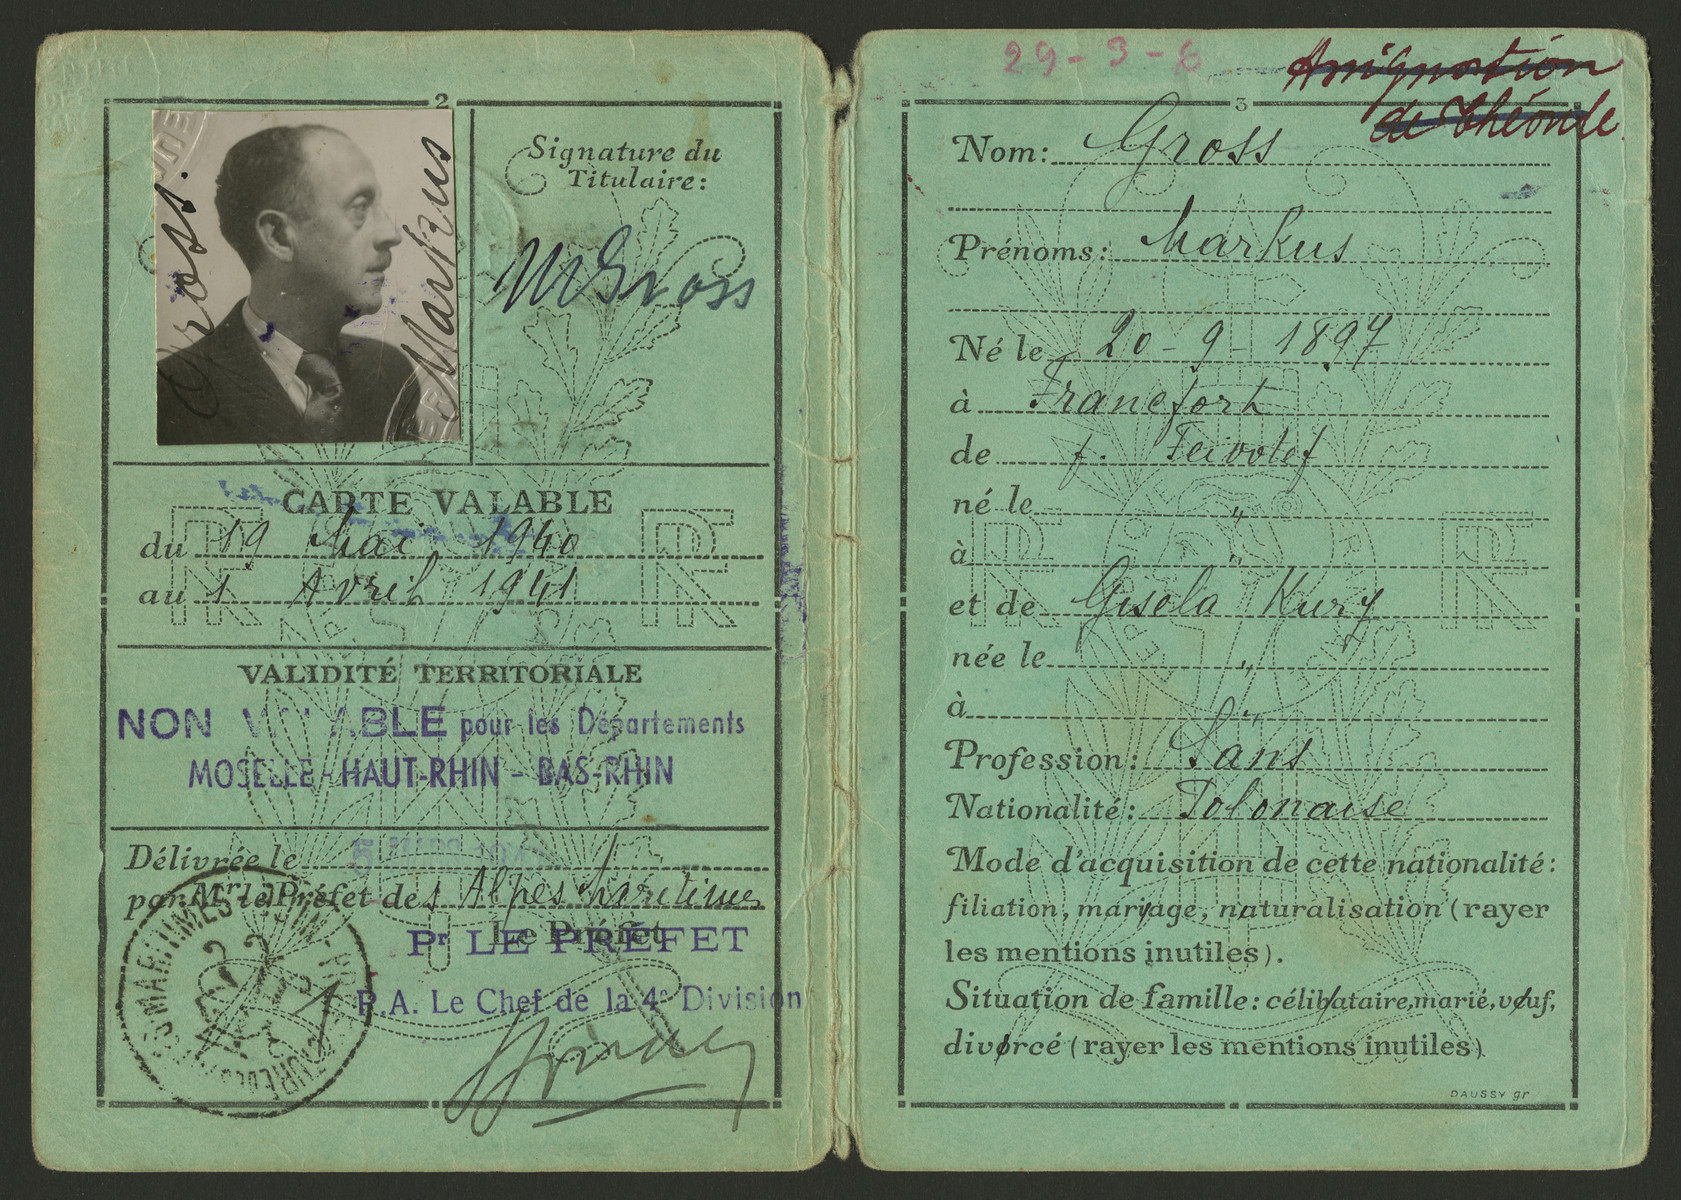 2
Gross.
Markus
Signature du
Titulaire:
MGross
CARTE VALABLE
du 19 Mai 1940
au 1 Avril 1941
VALIDITÉ TERRITORIALE
NON VALABLE pour les Départements
MOSELLE - HAUT-RHIN - BAS-RHIN
Délivrée le 5
par Mr le Préfet des Alpes Maritimes
Le Préfet
Pr LE PRÉFET
P.A. Le Chef de la 4e Division
29-3-6
Assignation
de Théoule
3
Nom: Gross
Prénoms: Markus
Né le 20-9-1897
à Francfort
de f.
né le "
à "
et de Gisela Kurz
née le "
à "
Profession: Sans
Nationalité: Polonaise
Mode d'acquisition de cette nationalité:
filiation, mariage, naturalisation (rayer
les mentions inutiles).
Situation de famille: célibataire, marié, veuf,
divorcé (rayer les mentions inutiles)
DAUSSY gr